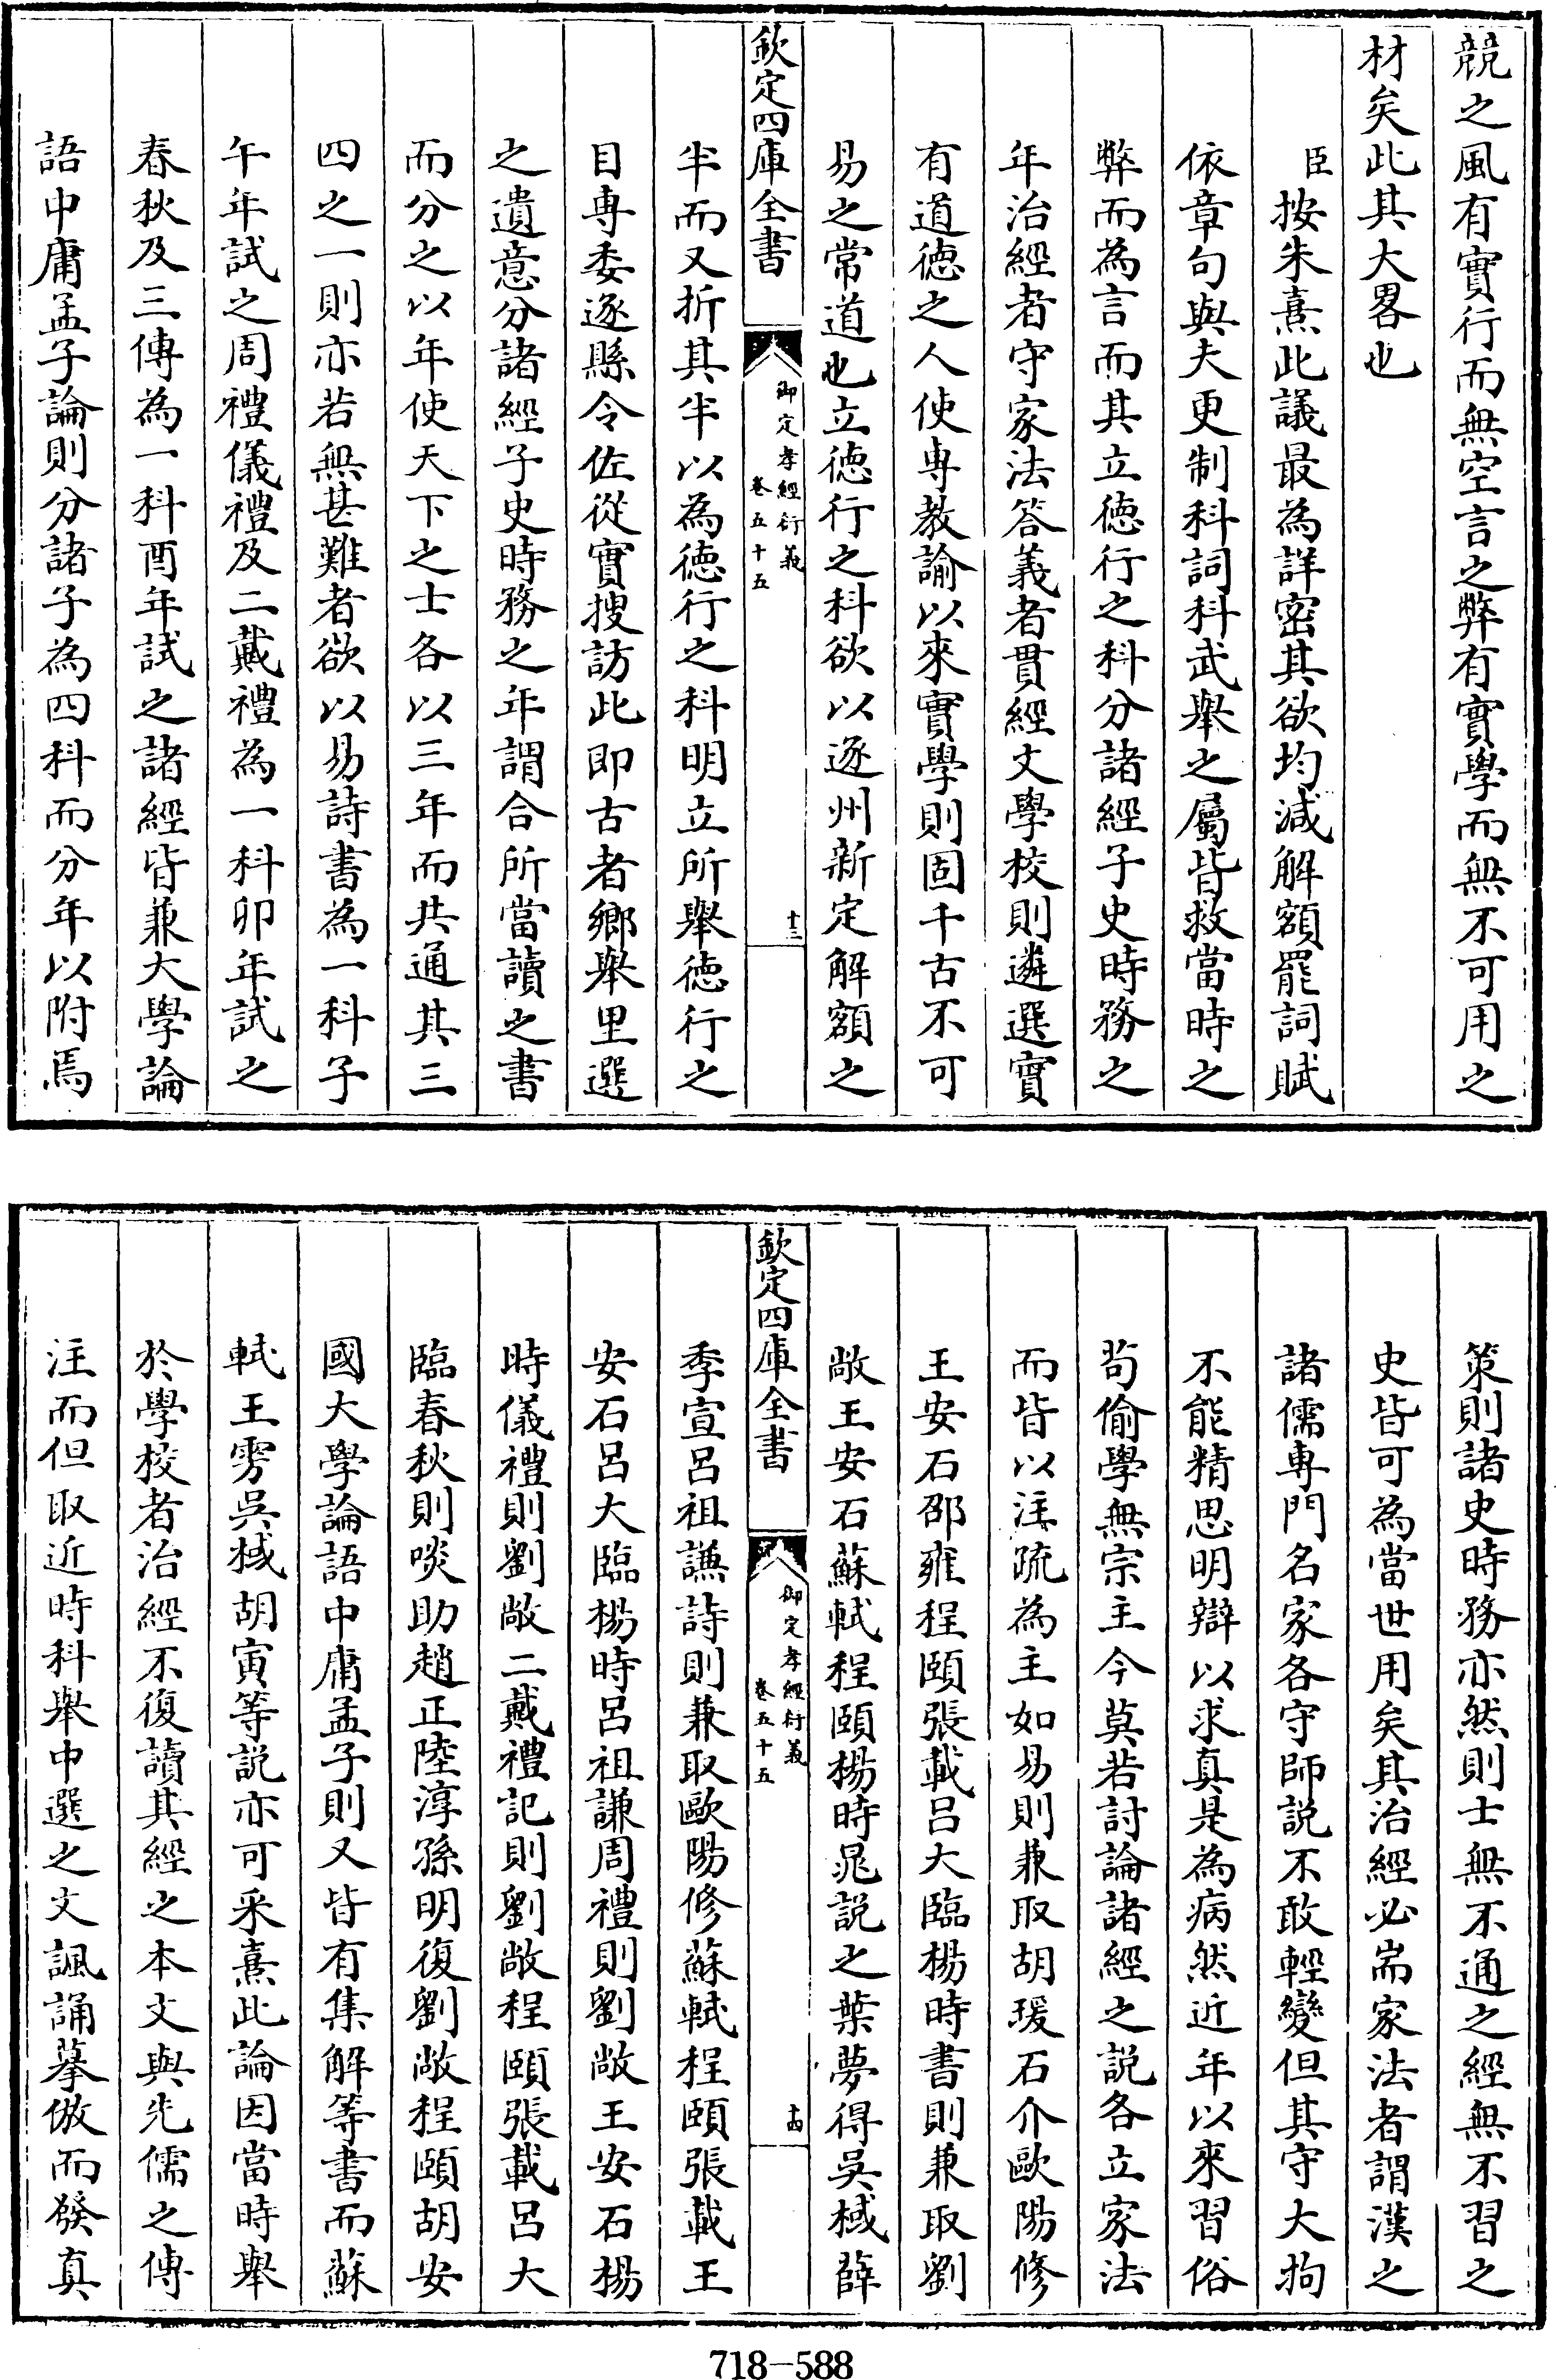 競之風有實行而無空言之弊有實學而無不可用之
材矣此其大畧也
臣按朱熹此議最為詳密其欲均減解額罷詞賦
依章句與夫更制科詞科武舉之屬皆救當時之
弊而為言而其立徳行之科分諸經子史時務之
年治經者守家法答義者貫經文學校則遴選實
有道徳之人使専教諭以來實學則固千古不可
易之常道也立徳行之科欲以逐州新定解額之
欽定四庫全書
御定孝經衍義
卷五十五
十三
半而又折其半以為徳行之科明立所舉徳行之
目専委逐縣令佐從實搜訪此即古者鄉舉里選
之遺意分諸經子史時務之年謂合所當讀之書
而分之以年使天下之士各以三年而共通其三
四之一則亦若無甚難者欲以易詩書為一科子
午年試之周禮儀禮及二戴禮為一科卯年試之
春秋及三傳為一科酉年試之諸經皆兼大學論
語中庸孟子論則分諸子為四科而分年以附焉
策則諸史時務亦然則士無不通之經無不習之
史皆可為當世用矣其治經必耑家法者謂漢之
諸儒専門名家各守師説不敢輕變但其守大拘
不能精思明辯以求真是為病然近年以來習俗
苟偷學無宗主今莫若討論諸經之說各立家法
而皆以注疏為主如易則兼取胡瑗石介歐陽修
王安石邵雍程頤張載呂大臨楊時書則兼取劉
敞王安石蘇軾程頤楊時晁説之葉夢得吳棫薛
欽定四庫全書
御定孝經衍義
卷五十五
十四
季宣呂祖謙詩則兼取歐陽修蘇軾程頤張載王
安石呂大臨楊時呂祖謙周禮則劉敞王安石楊
時儀禮則劉敞二戴禮記則劉敞程頤張載呂大
臨春秋則啖助趙正陸淳孫明復劉敞程頤胡安
國大學論語中庸孟子則又皆有集解等書而蘇
軾王雱吳棫胡寅等説亦可采熹此論因當時舉
於學校者治經不復讀其經之本文與先儒之傳
注而但取近時科舉中選之文諷誦摹倣而發真
718-588